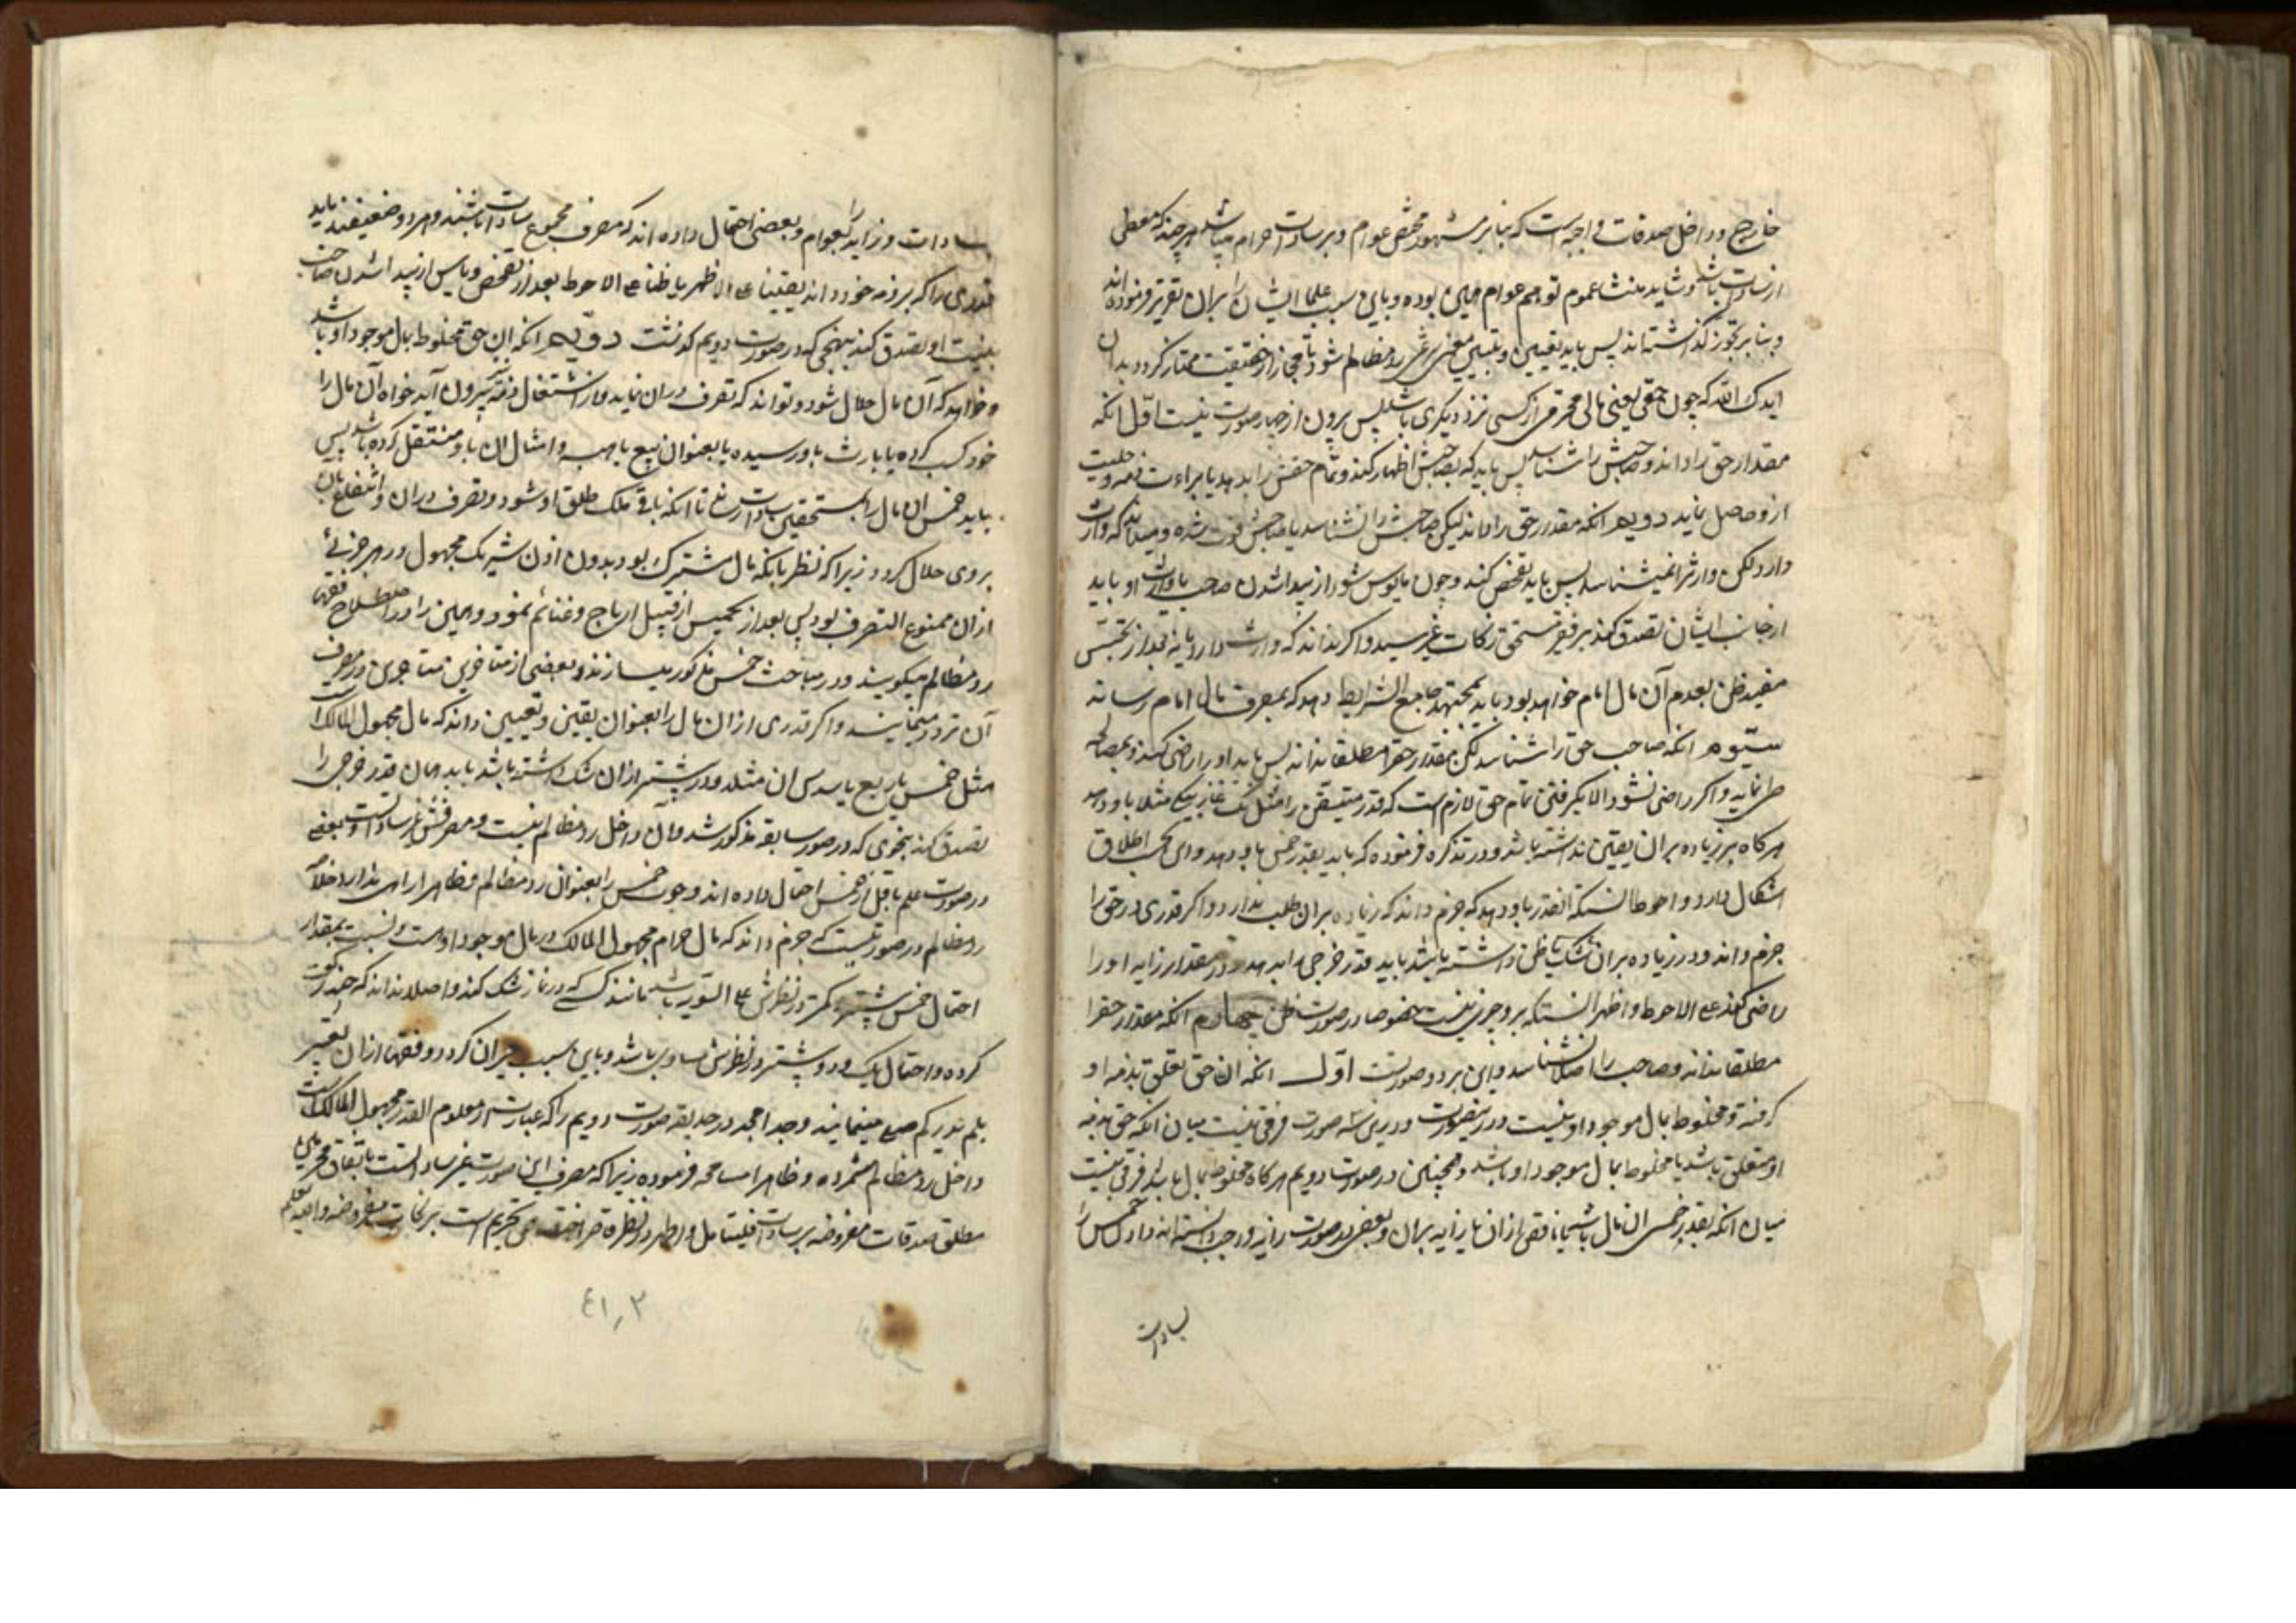 خارج و داخل صدقات واجبه است که بنا بر مشهور مختص عوام و بر سادات حرام میباشد هر چند که معطی
از سادات باشد و شاید منشا عموم توهم عوام همین بوده و باین سبب علما ایشان را بران تقریر فرموده‌اند
و بنا بر تجوز گذاشته‌اند پس باید تعیین و تبیین معنی شرعی رد مظالم شود تا مجاز از حقیقت ممتاز گردد بدان
ایدک الله که چون حقی یعنی مالی محترم از کسی نزد دیگری باشد پس بیرون از چهار صورت نیست اول انکه
مقدار حق را داند و صاحبش را شناسد پس باید که بصاحبش اظهار کند و تمام حقش را بدهد یا براءت ذمه و حلیت
ازو حاصل نماید دویم انکه مقدر حق را داند لیکن صاحبش را نشناسد یا صاحبش فوت شده و میداند که وارث
دارد لکن وارث را نمیشناسد پس باید تفحص کند و چون مایوس شود از پیدا شدن صاحب یا وارث او باید
از جانب ایشان تصدق کند بر فقیر مستحق زکات غیر سید و اگر نداند که وارث دارد یا نه بعد از تجسس
مفید ظن بعدم آن مال امام خواهد بود باید بمجتهد جامع الشرایط دهد که بمصرف مال امام رساند
سیوم انکه صاحب حق را شناسد لکن مقدار حق را مطلقا نداند پس باید او را راضی کند و بمصالحه
طی نماید و اگر راضی نشود الا بگرفتن تمام حق لازم است که قدر متیقن را مثل یک غازبیگی مثلا باو دهد
هرگاه بر زیاده بران یقین نداشته باشد و در تذکره فرموده که باید بقدر خمس باو دهد و این بحسب اطلاق
اشکال دارد و احوط انستکه انقدر باو دهد که جزم داند که زیاده بران طلب ندارد و اگر قدری از حق را
جزم داند و در زیاده بران شک یا ظن داشته باشد باید قدر جزمی را بدهد و در مقدار زاید او را
راضی کند علی الاحوط و اظهر انستکه بر او چیزی نیست خصوصا در صورت ظن چهارم انکه مقدار حق را
مطلقا نداند و صاحب را اصلا نشناسد و این بر دو صورتست اول انکه ان حق تعلق بذمه او
گرفته و مخلوط بمال موجود او نیست و در ینصورت و در ین سه صورت فرقی نیست میان انکه حق بذمه
او متعلق باشد یا مخلوط بمال موجود او باشد و همچنین در صورت دویم هرگاه مخلوط بمال باشد فرقی نیست
میان انکه بقدر خمس ان مال باشد یا ناقص ازان یا زاید بران و بعضی در صورت زاید واجب دانسته‌اند دادن خمس را
بسادات
بسادات و زاید را بعوام و بعضی احتمال داده اند که مصرف مجموع سادات باشند و هر دو ضعیفند باید
قدری را که بر ذمه خود داند یقینا علی الاظهر یا ظنا علی الاحوط بعد از تفحص و یاس از پیدا شدن صاحب
بنیت او تصدق کند بنهجی که در صورت دویم گذشت دویم انکه ان حق مخلوط بمال موجود او باشد
و خواهد که آن مال حلال شود و تواند که تصرف دران نماید و از اشتغال ذمه بیرون آید خواه آن مال را
خود کسب کرده یا بارث باو رسیده یا بعنوان بیع یا هبه و امثال ان باو منتقل کرده باشد پس
باید خمس ان مال را بمستحقین سادات رساند تا انکه باقی ملک طلق او شود و تصرف دران و انتفاع بان
بر وی حلال گردد زیرا که نظر بانکه مال مشترک بود بدون اذن شریک مجهول در هر جزئی
ازان ممنوع التصرف بود پس بعد از تخمیس از قبیل ارباح و غنائم نمود و همین را در اصطلاح فقها
رد مظالم میگویند و در مباحث خمس مذکور میسازند و بعضی از متاخرین متاخرین در مصرف
آن تردد مینمایند و اگر قدری از ان مال را بعنوان یقین و تعیین داند که مال مجهول المالک است
مثل خمس یا ربع یا سدس ان مثلا و در بیشتر ازان شک داشته باشد باید همان قدر جزمی را
تصدق کند بنحوی که در صور سابقه مذکور شد و آن داخل رد مظالم نیست و مصرفش غیر سادات است و بعضی
در صورت علم باقل از خمس احتمال داده اند وجوب خمس را بعنوان رد مظالم و ظاهرا راهی ندارد خلاصه
رد مظالم در صورتیست که جزم داند که مال حرام مجهول المالک در مال موجود او هست و نسبت بمقدار
احتمال خمس و بیشتر و کمتر در نظرش علی السویه باشد مانند کسی که در نماز شک کند و اصلا نداند که چند رکعت
کرده و احتمال یک و دو و بیشتر در نظرش مساوی باشد و باین سبب حیران گردد و فقها ازان تعبیر
بلم یدر کم صلی مینمایند و جد امجد در حدیقه صورت دویم را که عبارتست از معلوم القدر مجهول المالک است
داخل رد مظالم شمرده و ظاهرا مسامحه فرموده زیرا که مصرف این صورت غیر سادات است باتفاق محرمین
مطلق صدقات مفروضه بر سادات فلیتامل و اظهر در نظر قاصر اختصاص تحریم است بزکات مفروضه و الله یعلم
٤١٫٢